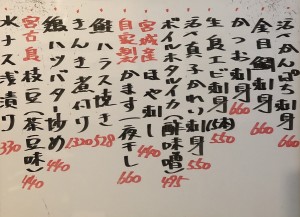 活〆かんぱち刺身 660
金目鯛刺身 660
かつお刺身 660
生島エビ刺身(5本) 550
活〆真子かれい刺身 550
ボイルホタルイカ(酢味噌) 495
宮城産 ほや刺し 440
自家製 かます一夜干し 660
鮭ハラス焼き 528
きんき煮付け 1320
ハツバター炒め 440
宮古島 枝豆(茶豆味) 440
水ナス浅漬り 330